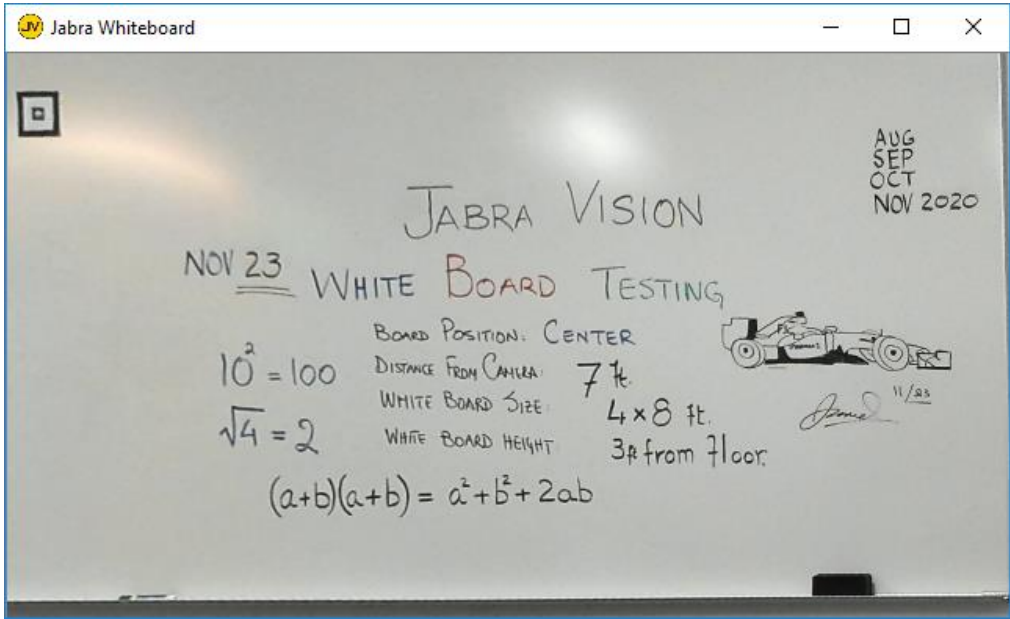 Jabra Whiteboard
AUG
SEP
OCT
NOV 2020
JABRA VISION
NOV 23
WHITE BOARD TESTING
BOARD POSITION: CENTER
DISTANCE FROM CAMERA: 7 ft.
WHITE BOARD SIZE: 4 x 8 ft.
WHITE BOARD HEIGHT 3ft from floor.
10² = 100
√4 = 2
(a+b)(a+b) = a² + b² + 2ab
11/23